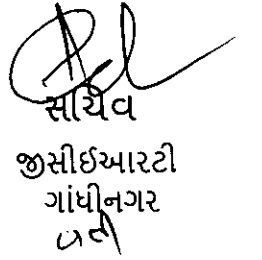 સચિવ
જીસીઈઆરટી
ગાંધીનગર
વતી